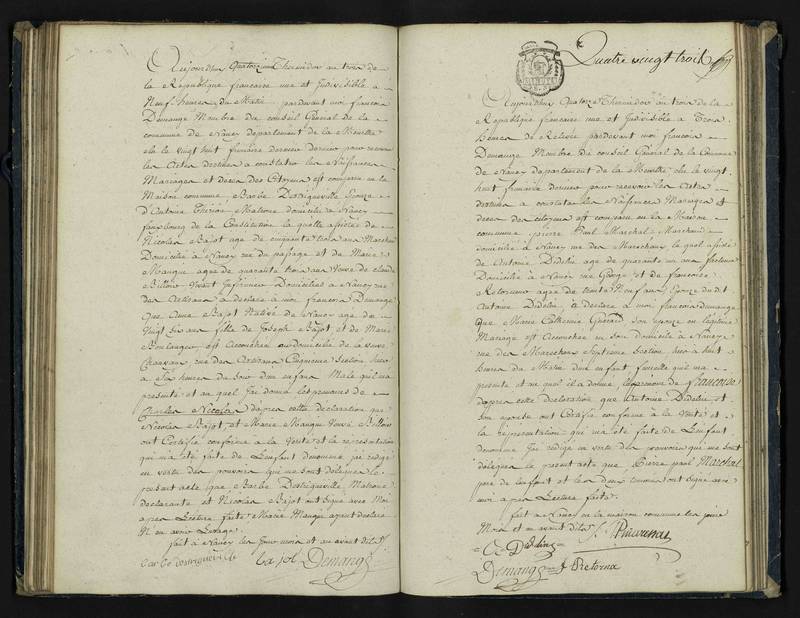 Aujourdhui Quatorze Thermidor an trois de
la République francaise une et Indivisible à
Neuf heures du Matin pardevant moi francois
Demange Membre du conseil Général de la
commune de Nancy departement de la Meurthe
elu le vingt huit frimaire dernier pour recevoir
les Actes destinés a constater les Naissances
Mariages et décès des Citoyens est comparu en la
Maison commune Barbe Epouze
d'Antoine Matrone domiciliée à Nancy
fauxbourg de la Constitution la quelle assistée de
Nicolas Bajot agé de cinquante trois ans Marchand
Domicilié à Nancy rue du passage et de Marie
Mangue agée de quarante trois ans Veuve de claude
Billon Domiciliés à Nancy rue
des Artisans à déclaré à moi francois Demange
Que Anne Bajot Native de Nancy agée de
Vingt six ans fille de Joseph Bajot et de Marie
Boulanger est accouchée au domicile de la veuve
rue des Artisans Cinquieme Section hier
à Six heures du Soir d'un enfant Male qu'il m'a
présenté et au quel j'ai donné les prenoms de
Charles Nicolas d'apres cette déclaration que
Nicolas Bajot et Marie Mangue Veuve Billon
ont Certifié conforme à la Verité et la représentation
qui m'a été faite de L'enfant denommé j'ai rédigé
en vertu des pouvoirs qui me sont délégués le
présent acte que Barbe Matrone
déclarante et Nicolas Bajot ont signé avec Moi
apres Lecture faite Marie Mangue ayant déclaré
N'en avoir L'usage
fait à Nancy les jour mois et an avant dits
Barbe Bajot Demange
Quatre vingt trois
Aujourdhui Quatorze Thermidor an trois de la
République francaise une et Indivisible à Trois
heures de Relevée pardevant moi francois
Demange Membre du conseil Général de la Commune
de Nancy departement de la Meurthe elu le vingt
huit frimaire dernier pour recevoir les Actes
destinés a constater les Naissances Mariages et
décès des citoyens est comparu en la Maison
commune pierre Paul Marchal Marchand
domicilié à Nancy rue des Marechaux le quel assisté
de Antoine Didelin agé de quarante un ans
Domicilié à Nancy rue George et de francoise
Retournu agée de trente Neuf ans Epouze du dit
Antoine Didelin a déclaré à moi francois demange
Que Marie Catherine Guérard son epouze en légitime
Mariage est Accouchée en son domicile à Nancy
rue des Marechaux Septieme Section hier à huit
heures du Matin d'un enfant femelle qu'il m'a
présenté et au quel il a donné le prenom de Francoise
d'apres cette déclaration que Antoine Didelin et
son epouse ont Certifié conforme à la Verité et
la représentation qui m'a été faite de L'enfant
denommé j'ai rédigé en vertu des pouvoirs qui me sont
délégués le présent acte que Pierre paul Marchal
pere de l'enfant et les deux temoins ont signé avec
moi apres Lecture faite
fait à Nancy en la maison commune les jour
Mois et an avant dits
A Didelin
Demange f Retornu